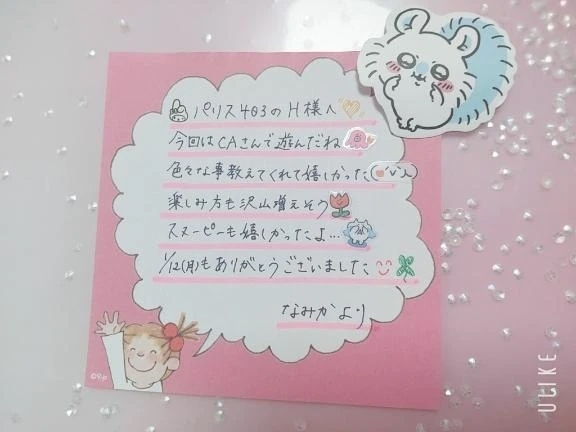 パリス403のH様へ
今回はCAさんで遊んだね
色々な事教えてくれて嬉しかった
楽しみ方も沢山増えそう
スヌーピーも嬉しかったよ…
1/12(月)もありがとうございました
なみかより
ULIKE